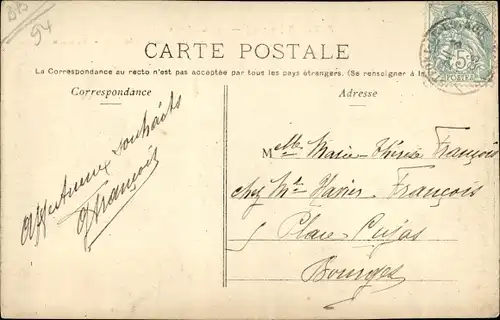 94
CARTE POSTALE
La Correspondance au recto n'est pas acceptée par tous les pays étrangers. (Se renseigner à la
Correspondance
Adresse
Affectueux souhaits
François
5
POSTES
Melle Marie-Thérèse François
chez Mr Xavier François
5 Place Cujas
Bourges